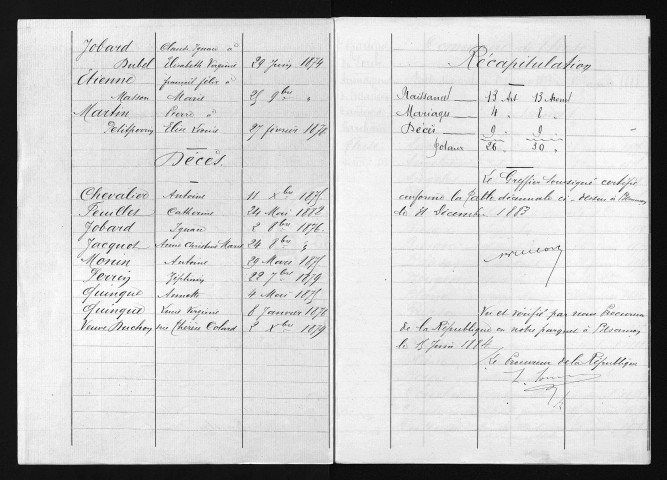 Jobard Claude Ignace à
Elisabeth Virginie 29 Juin 1874
Etienne françois félix à
Masson Marie 25 9bre "
Martin Pierre à
Petitperrin Elise Louise 27 février 1878
Décès
Chevalier Antoine 11 Xbre 1875
Feuillet Catherine 24 Mai 1882
Jobard Ignace 2 8bre 1876
Jacquot Anne Christine Marie 24 8bre "
Monin Antoine 29 Mars 1875
Perrin Zéphirin 22 7bre 1879
Quinque Annette 4 Mai 1875
Quinque Virginie 6 Janvier 1876
Veuve née Colard 2 Xbre 1879
Récapitulation
Naissances 13 Art 13 Nom
Mariages 4 " 8 "
Décès 9 " 9 "
Totaux 26 30
Le Greffier soussigné certifie
conforme la Table décennale ci-dessus à Besançon
le 31 Décembre 1883
Vu et vérifié par nous Procureur
de la République en notre parquet à Besançon
le 15 Juin 1884
Le Procureur de la République